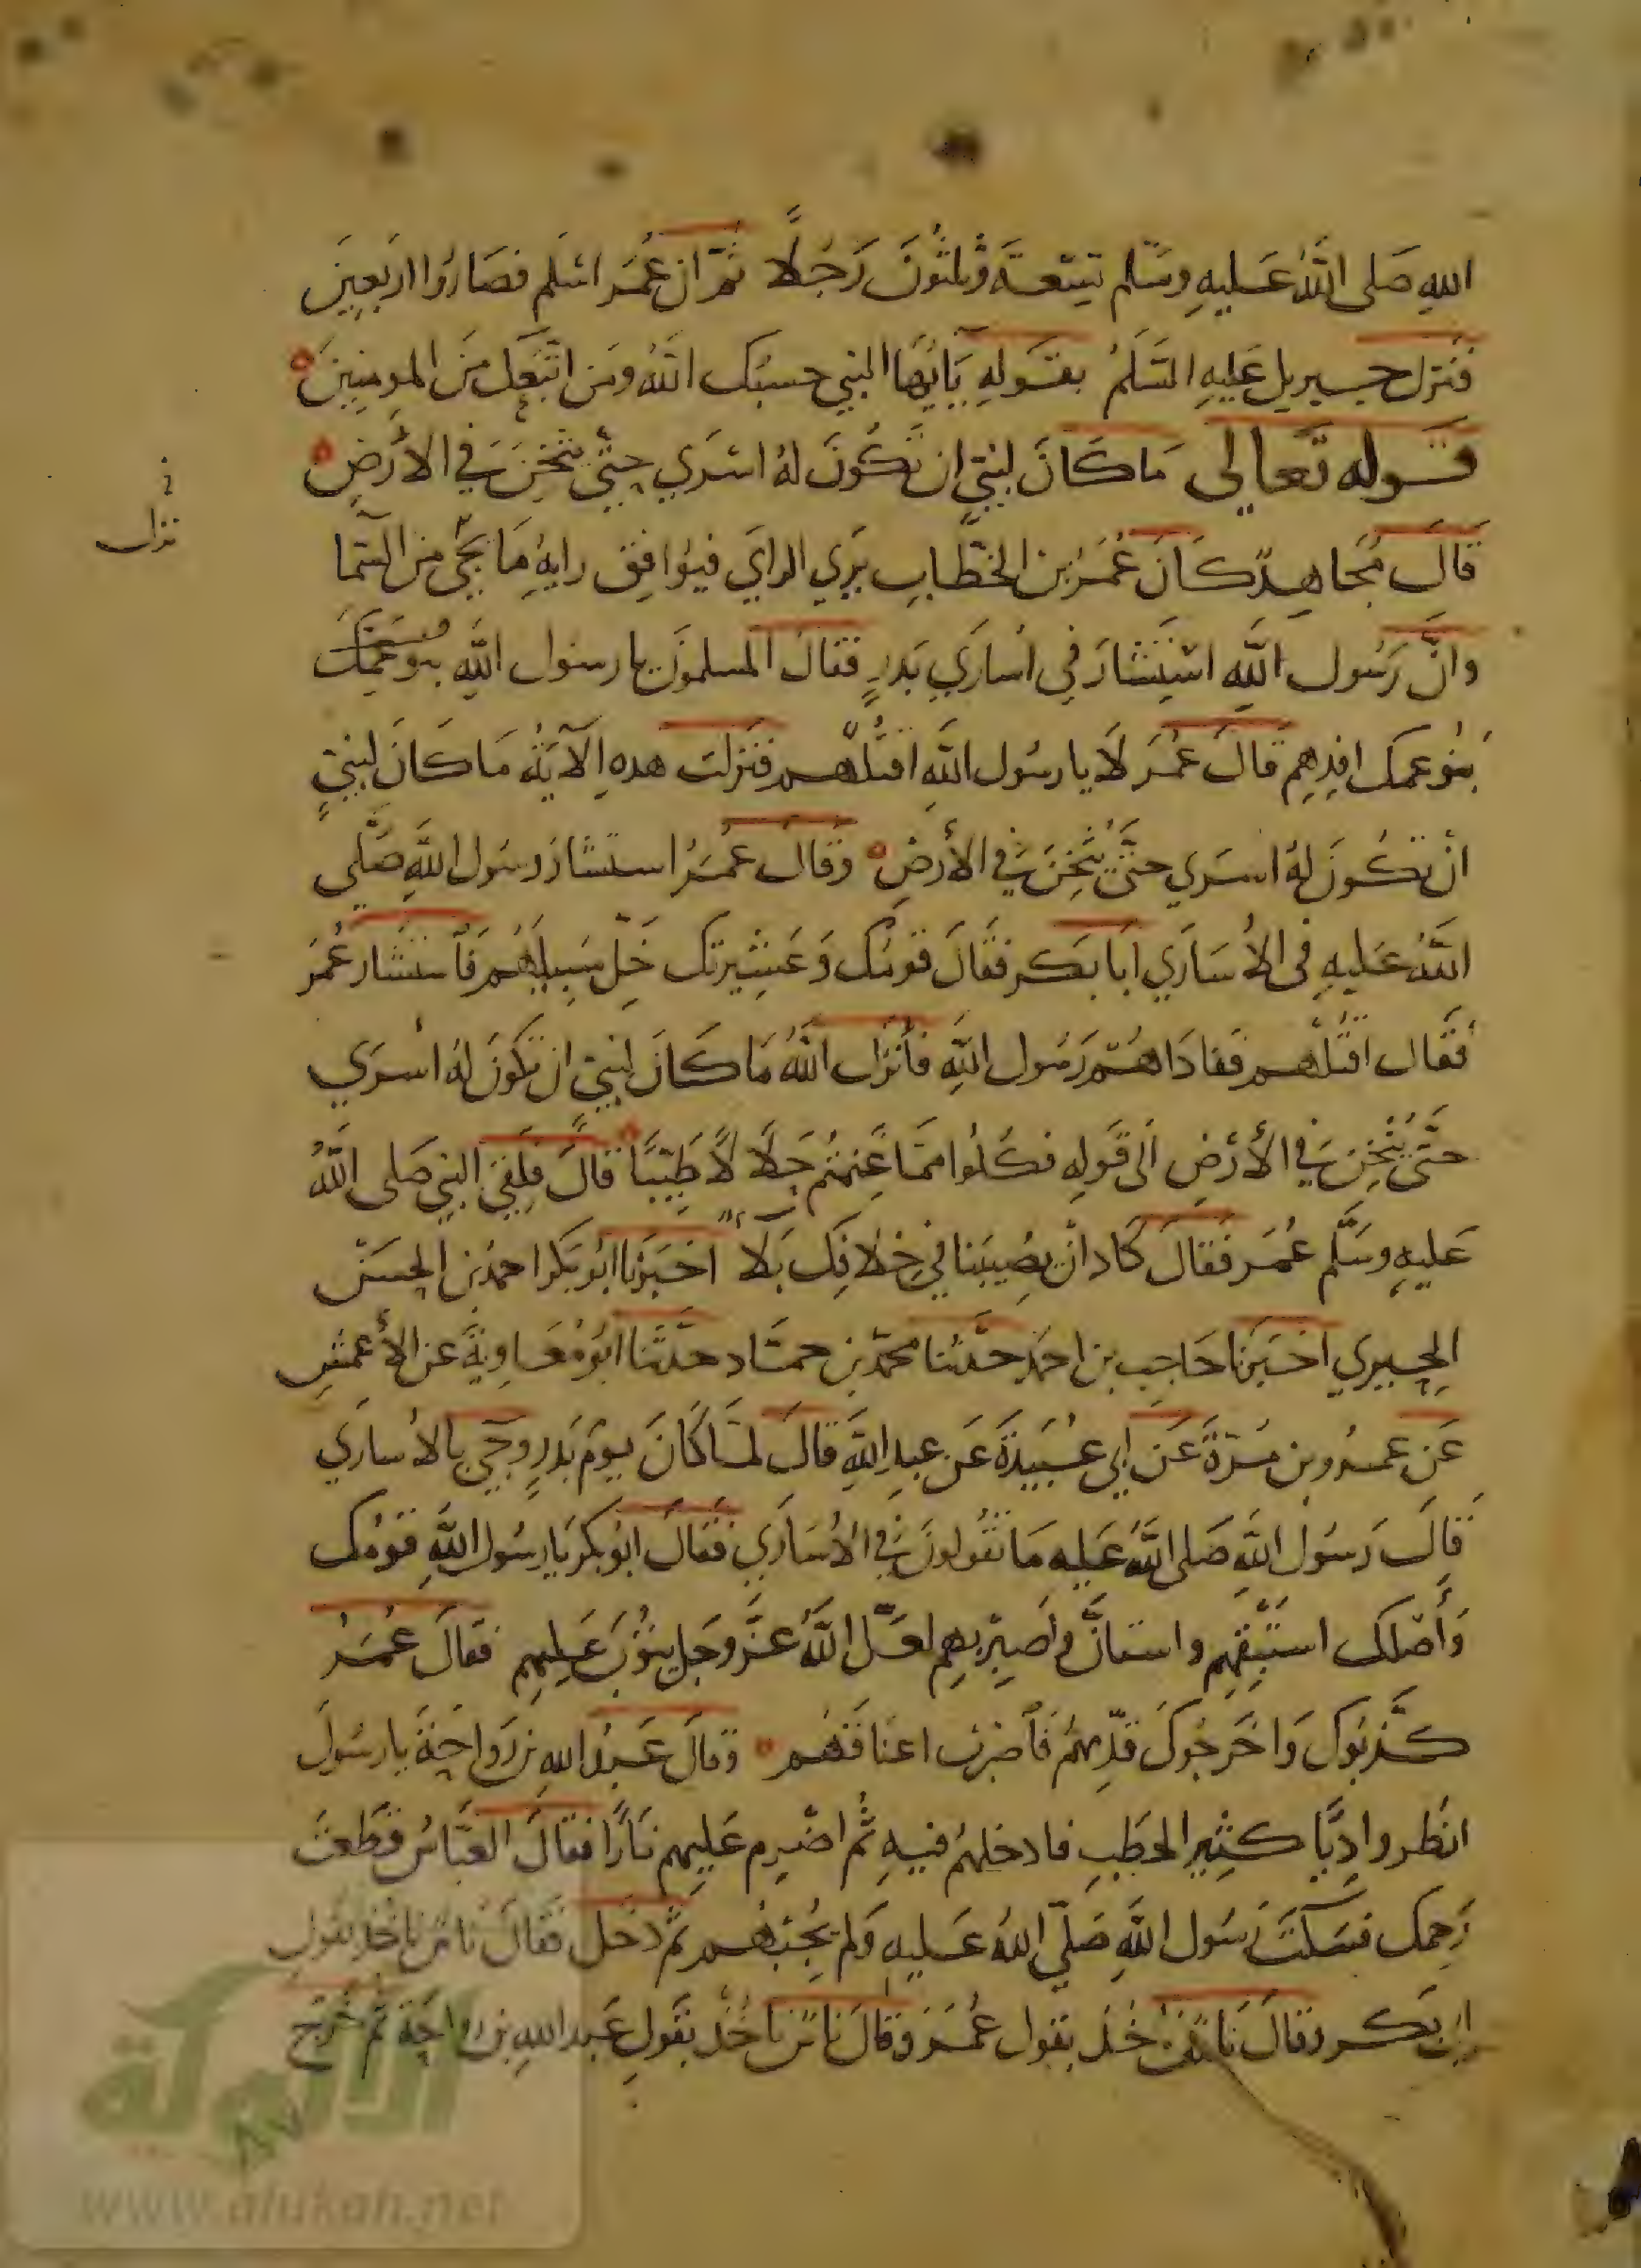 اللهِ صَلى اللَّهُ عَليهِ وسَلم تِسْعَةَ وَثلثُونَ رَجُلًا ثُمَّ ان عُمَر اسْلَم فصَارُوا اربَعِينَ
فَنزل جبريل عَليهِ السَّلَمُ بقَولهِ يَايُّهَا النبي حسبُك اللَّهُ ومَن اتَّبَعَك مِنَ المومِنِينَ
قوله تعَالى مَا كَانَ لِنبيّ ان تَكُونَ لهُ اسْرَي حتّي يُثخِنَ في الأرَضِ
قَالَ مُجَاهِدٌ كَانَ عُمَرُ بن الخطّابِ يَرَي الرايَ فيُوَافِق رايهُ مَا يَجَيُ من السّمَا
وانَّ رَسُول اللَّهِ اسْتَشَارَ في اُسَارَي بَدرٍ فقالَ المسلموُنَ يا رسُول اللَّهِ بنو عَمِّك
بَنُو عمك افدِهِم قالَ عُمَر لَا يا رسُول اللَّهِ اقتُلْهم فنَزلت هذهِ الآيَةُ مَا كَانَ لِنبيٍّ
انْ تَكُونَ لهُ اسرَي حتَّى يُثْخِنَ في الأرضِ وَقالَ عُمَرُ استشَارَ رسُول اللَّهِ صَلَّى
اللَّهُ عَليهِ في الاُسَارَي ابَا بَكر فقَالَ قَومُك وَعَشِيرتك خَلِّ سَبِيلَهُم فَاَستشَار عُمَر
فقَال اقتُلْهم ففادَاهُم رَسُول اللَّهِ فأنزَل اللَّهُ مَا كَانَ لِنبيّ ان تكُونَ لهُ اسْرَي
حتَّى يُثْخِنَ في الأرْضِ الى قَولهِ فكُلُوا ممَّا غَنِمتُم حَلَالًا طَيِّبًا قالَ فلقِيَ النبي صَلى اللَّهُ
عَليهِ وسَلَّم عُمَر فقَالَ كَادَ انْ يصِيبَنا في خِلافِك بَلَا اخبَرَنا ابُو بَكر احمدُ بن الحسَن
الحِيري اخبَرَنا حَاجِب بن احمَد حدَّثنا محمّد بن حمَّاد حدّثَنا ابُو مُعَاوِيَةَ عن الأعمشِ
عَن عمرو بن مُرّةَ عَن ابي عُبَيدَةَ عَن عبدِ اللَّهِ قالَ لمَّا كَانَ يومُ بَدرٍ وجيَ بالاُسَارَي
قَالَ رَسُول اللَّهِ صَلى اللَّهُ عَليه مَا تَقُولونَ في الاُسَارَي فقَالَ ابُو بكر يَا رسُول اللَّهِ قَومُك
وَأصْلك اسْتَبْقِهِم واستانَّ واَصبِرْ بهِم لعَلّ اللَّهُ عَزَّ وجَل يتُوبَ عَليهِم فقالَ عُمَرُ
كَذَّبُوكَ وَاخرَجُوكَ قدِّمهُم فَاَضْرِبْ اعنَاقَهُم وقالَ عَبدُ اللهِ بن رَوَاحَةَ يا رسُولَ
انظر وادِيًا كثِيرَ الحطَبِ فادخلهُم فيهِ ثُم اضرِم عَليهِم نَارًا فقَالَ العَبَّاسُ قطعَتَ
رَحِمك فسَكَتَ رَسُول اللَّهِ صَلّي اللهُ عَليهِ وَلم يُجبْهُم ثمّ دخَل فقَالَ نَاسٌ ياخُذ بقول
ابي بَكر وقالَ نَاسٌ ياخُذ بقول عُمَرَ وقالَ نَاسٌ ياخُذ بقَولِ عَبد اللهِ بن رواحَة ثُم خَرَج
نزل
الألوكة
www.alukah.net